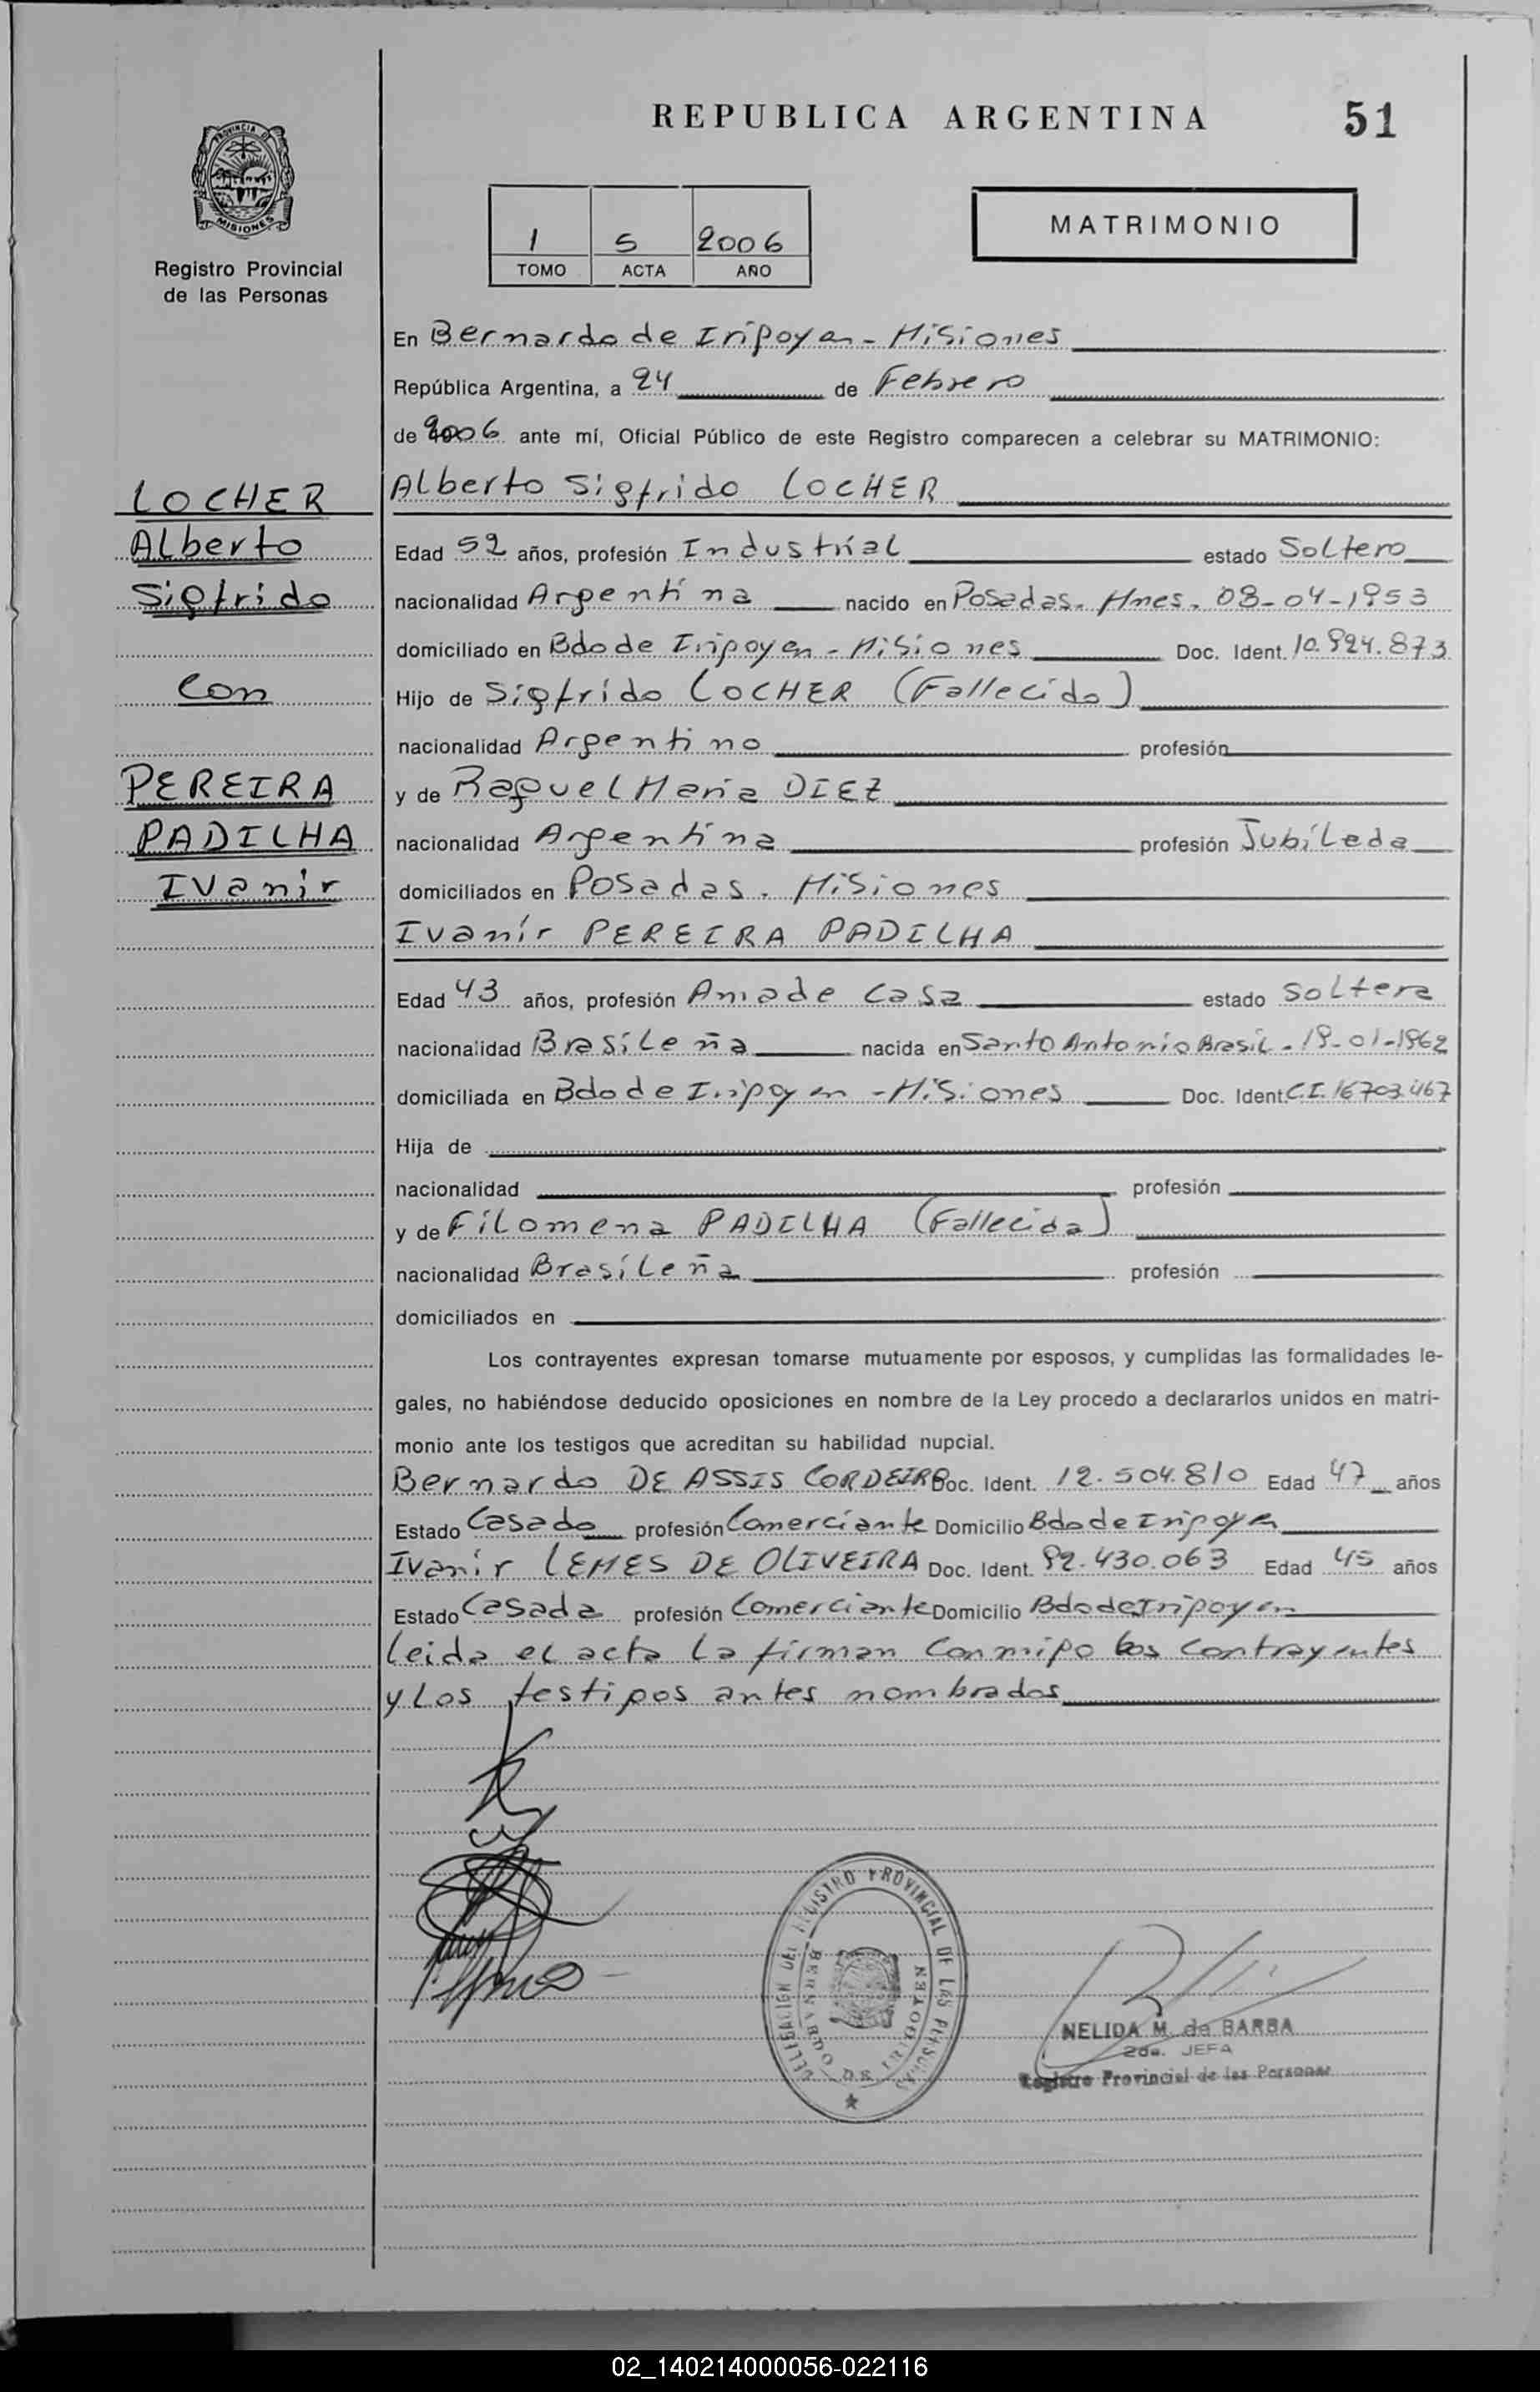 REPUBLICA ARGENTINA
51
PROVINCIA DE
MISIONES
Registro Provincial
de las Personas
1 5 2006
TOMO ACTA AÑO
MATRIMONIO
En Bernardo de Irigoyen - Misiones
República Argentina, a 24 de Febrero
de 2006 ante mí, Oficial Público de este Registro comparecen a celebrar su MATRIMONIO:
LOCHER
Alberto
Sigfrido
Con
PEREIRA
PADILHA
Ivanir
Alberto Sigfrido LOCHER
Edad 52 años, profesión Industrial estado Soltero
nacionalidad Argentina nacido en Posadas. Mnes. 08-04-1953
domiciliado en Bdo de Irigoyen - Misiones Doc. Ident. 10.924.873
Hijo de Sigfrido LOCHER (Fallecido)
nacionalidad Argentino profesión
y de Raquel Maria DIEZ
nacionalidad Argentina profesión Jubilada
domiciliados en Posadas. Misiones
Ivanir PEREIRA PADILHA
Edad 43 años, profesión Ama de Casa estado Soltera
nacionalidad Brasileña nacida en Santo Antonio Brasil - 19-01-1962
domiciliada en Bdo de Irigoyen - Misiones Doc. Ident. C.I. 16703.467
Hija de
nacionalidad profesión
y de Filomena PADILHA (Fallecida)
nacionalidad Brasileña profesión
domiciliados en
Los contrayentes expresan tomarse mutuamente por esposos, y cumplidas las formalidades le-
gales, no habiéndose deducido oposiciones en nombre de la Ley procedo a declararlos unidos en matri-
monio ante los testigos que acreditan su habilidad nupcial.
Bernardo DE ASSIS CORDEIRO Doc. Ident. 12.504.810 Edad 47 años
Estado Casado profesión Comerciante Domicilio Bdo de Irigoyen
Ivanir LEMES DE OLIVEIRA Doc. Ident. 92.430.063 Edad 45 años
Estado Casada profesión Comerciante Domicilio Bdo de Irigoyen
Leida el acta la firman conmigo los contrayentes
y Los testigos antes nombrados
DELEGACION DEL REGISTRO PROVINCIAL DE LAS PERSONAS
BERNARDO DE IRIGOYEN
NELIDA M. de BARBA
2da. JEFA
Registro Provincial de las Personas
02_140214000056-022116